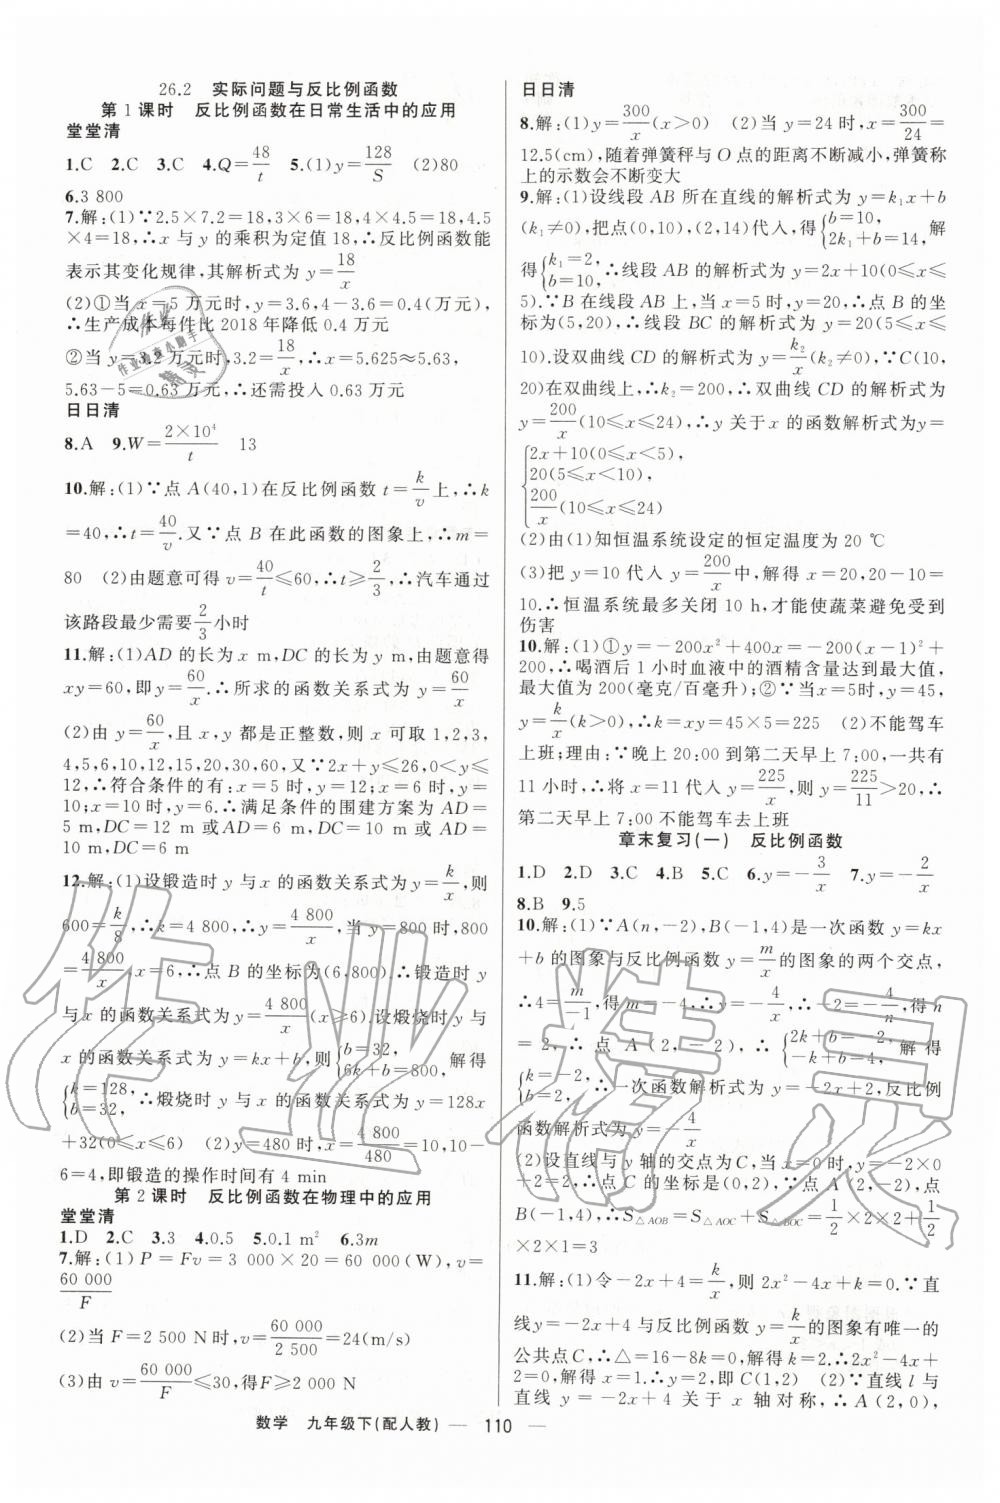 26.2 实际问题与反比例函数
第1课时 反比例函数在日常生活中的应用
堂堂清
1.C 2.C 3.C 4.Q=48/t 5.(1)y=128/S (2)80
6.3 800
7.解:(1)∵2.5×7.2=18,3×6=18,4×4.5=18,4.5
×4=18,∴x与y的乘积为定值18,∴反比例函数能
表示其变化规律,其解析式为y=18/x
(2)①当x=5万元时,y=3.6,4-3.6=0.4(万元),
∴生产成本每件比2018年降低0.4万元
②当y=3.2万元时,3.2=18/x,∴x=5.625≈5.63,
5.63-5=0.63万元,∴还需投入0.63万元
日日清
8.A 9.W=2×10⁴/t 13
10.解:(1)∵点A(40,1)在反比例函数t=k/v上,∴k
=40,∴t=40/v.又∵点B在此函数的图象上,∴m=
80 (2)由题意可得v=40/t≤60,∴t≥2/3,∴汽车通过
该路段最少需要2/3小时
11.解:(1)AD的长为x m,DC的长为y m,由题意得
xy=60,即y=60/x.∴所求的函数关系式为y=60/x
(2)由y=60/x,且x,y都是正整数,x可取1,2,3,
4,5,6,10,12,15,20,30,60,又∵2x+y≤26,0<y≤
12,∴符合条件的有:x=5时,y=12;x=6时,y=
10;x=10时,y=6.∴满足条件的围建方案为AD=
5 m,DC=12 m或AD=6 m,DC=10 m或AD=
10 m,DC=6 m
12.解:(1)设锻造时y与x的函数关系式为y=k/x,则
600=k/8,∴k=4 800,∴y=4 800/x,当y=800时,800
=4 800/x,x=6,∴点B的坐标为(6,800).∴锻造时y
与x的函数关系式为y=4 800/x(x≥6).设煅烧时y与
x的函数关系式为y=kx+b,则{b=32, 6k+b=800,解得
{k=128, b=32,∴煅烧时y与x的函数关系式为y=128x
+32(0≤x≤6) (2)y=480时,x=4 800/480=10,10-
6=4,即锻造的操作时间有4 min
第2课时 反比例函数在物理中的应用
堂堂清
1.D 2.C 3.3 4.0.5 5.0.1 m² 6.3m
7.解:(1)P=Fv=3 000×20=60 000(W),v=
60 000/F
(2)当F=2 500 N时,v=60 000/2 500=24(m/s)
(3)由v=60 000/F≤30,得F≥2 000 N
日日清
8.解:(1)y=300/x(x>0) (2)当y=24时,x=300/24=
12.5(cm),随着弹簧秤与O点的距离不断减小,弹簧称
上的示数会不断变大
9.解:(1)设线段AB所在直线的解析式为y=k₁x+b
(k₁≠0),把点(0,10),(2,14)代入,得{b=10, 2k₁+b=14,解
得{k₁=2, b=10,∴线段AB的解析式为y=2x+10(0≤x≤
5).∵B在线段AB上,当x=5时,y=20,∴点B的坐
标为(5,20),∴线段BC的解析式为y=20(5≤x≤
10).设双曲线CD的解析式为y=k₂/x(k₂≠0),∵C(10,
20)在双曲线上,∴k₂=200,∴双曲线CD的解析式为
y=200/x(10≤x≤24),∴y关于x的函数解析式为y=
{2x+10(0≤x<5),
20(5≤x<10),
200/x(10≤x≤24)
(2)由(1)知恒温系统设定的恒定温度为20 ℃
(3)把y=10代入y=200/x中,解得x=20,20-10=
10.∴恒温系统最多关闭10 h,才能使蔬菜避免受到
伤害
10.解:(1)①y=-200x²+400x=-200(x-1)²+
200,∴喝酒后1小时血液中的酒精含量达到最大值,
最大值为200(毫克/百毫升);②∵当x=5时,y=45,
y=k/x(k>0),∴k=xy=45×5=225 (2)不能驾车
上班;理由:∵晚上20:00到第二天早上7:00,一共有
11小时,∴将x=11代入y=225/x,则y=225/11>20,∴
第二天早上7:00不能驾车去上班
章末复习(一) 反比例函数
1.D 2.D 3.C 4.B 5.C 6.y=-3/x 7.y=-2/x
8.B 9.5
10.解:(1)∵A(n,-2),B(-1,4)是一次函数y=kx
+b的图象与反比例函数y=m/x的图象的两个交点,
∴4=m/-1,得m=-4,∴y=-4/x,∴-2=-4/n,得n
=2,∴点A(2,-2),∴{2k+b=-2, -k+b=4,解得
{k=-2, b=2,∴一次函数解析式为y=-2x+2,反比例
函数解析式为y=-4/x
(2)设直线与y轴的交点为C,当x=0时,y=-2×0
+2=2,∴点C的坐标是(0,2).∵点A(2,-2),点
B(-1,4),∴S△AOB=S△AOC+S△BOC=1/2×2×2+1/2
×2×1=3
11.解:(1)令-2x+4=k/x,则2x²-4x+k=0.∵直
线y=-2x+4与反比例函数y=k/x的图象有唯一的
公共点C,∴△=16-8k=0,解得k=2.∴2x²-4x+
2=0,解得x=1.∴y=2,即C(1,2) (2)∵直线l与
直线y=-2x+4关于x轴对称,∴A(2,0),
数学 九年级下(配人教) — 110 —
作业精灵